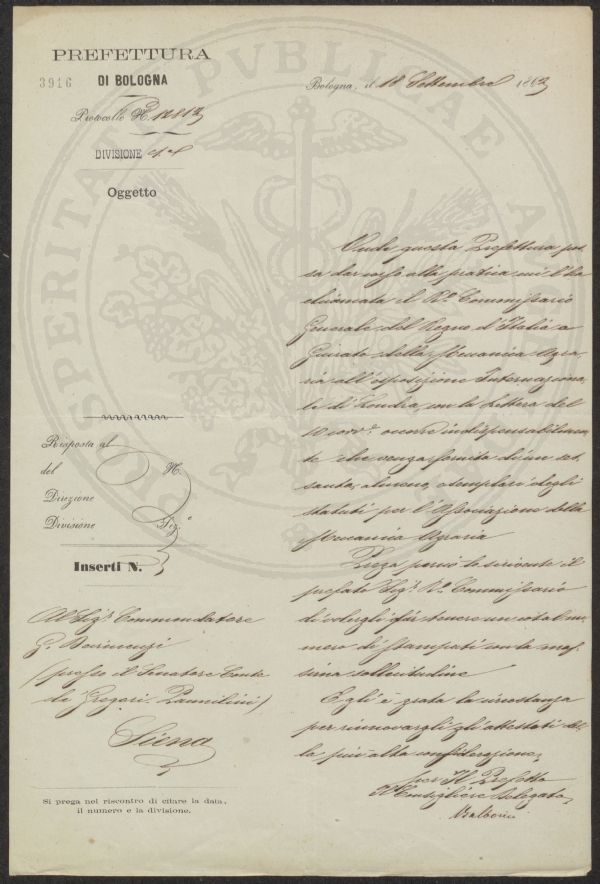 PREFETTURA
3916 DI BOLOGNA
Protocollo N.
DIVISIONE
Oggetto
Bologna, il 18 Settembre 1863
Onde questa Prefettura pos
sa dar corso alla pratica cui l'ha
chiamata il Rº Commissario
Generale del Regno d'Italia a
della Meccanica Agra
ria all'esposizione Internaziona
le di Londra, con la Lettera del
10 corrº occorre indispensabilmen
te che venga fornita di un ses
santa, almeno, esemplari degli
statuti per l'Associazione della
Meccanica Agraria
Prega perciò lo scrivente il
prefato Sigr Rº Commissario
di volergli far tenere un cotal nu
mero di stampati con la mas
sima sollecitudine
Egli è grata la circostanza
per rinnovargli gli attestati del
la più alta considerazione,
per Il Prefetto
Il Consigliere Delegato
Risposta al
del N.
Direzione
Divisione Sez.ª
Inserti N.
Al Sigr Commendatore
G. Devincenzi
(presso il Senatore Conte
de Gregori. Pannilini)
Siena
Si prega nel riscontro di citare la data,
il numero e la divisione.
PROSPERITATI PVBLICAE AVGENDAE